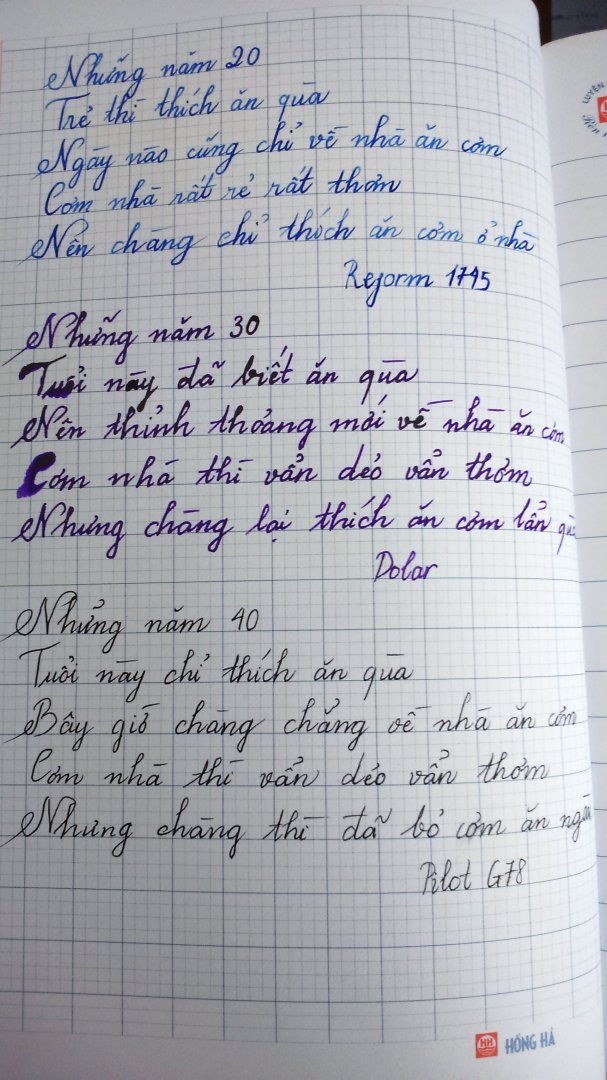 Những năm 20
Trẻ thì thích ăn quà
Ngày nào cũng chỉ về nhà ăn cơm
Cơm nhà rất rẻ rất thơm
Nên chàng chỉ thích ăn cơm ở nhà
Reform 1745
Những năm 30
Tuổi này đã biết ăn quà
Nên thỉnh thoảng mới về nhà ăn cơm
Cơm nhà thì vẫn dẻo vẫn thơm
Nhưng chàng lại thích ăn cơm lẫn quà
Dolar
Những năm 40
Tuổi này chỉ thích ăn quà
Bây giờ chàng chẳng về nhà ăn cơm
Cơm nhà thì vẫn dẻo vẫn thơm
Nhưng chàng thì đã bỏ cơm ăn
Pilot G78
HH HỒNG HÀ
LUYỆN